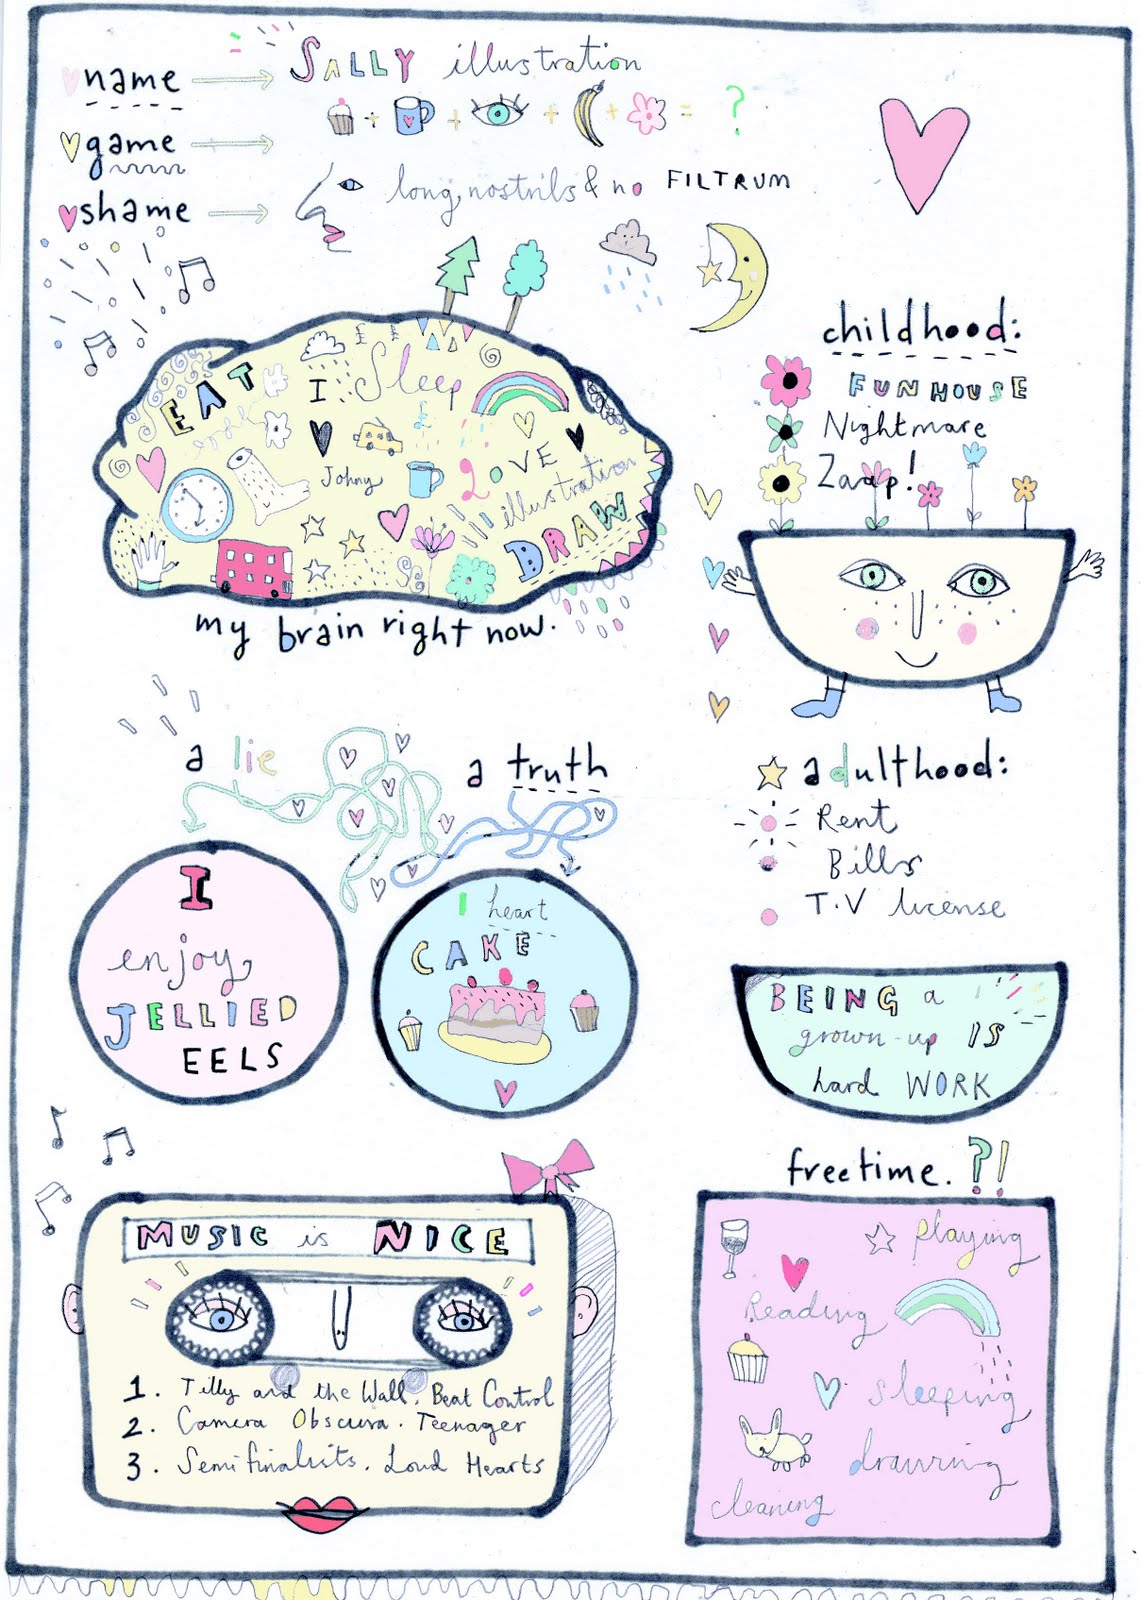 name
SALLY illustration
game
+ + + + = ?
shame
long nostrils & no FILTRUM
EAT
I Sleep
Johny
LOVE
illustration
DRAW
my brain right now.
childhood:
FUNHOUSE
Nightmare
Zaap!
a lie
a truth
I
enjoy
JELLIED
EELS
I heart
CAKE
adulthood:
Rent
Bills
T.V license
BEING a
grown-up IS
hard WORK
MUSIC is NICE
1. Tilly and the Wall. Beat Control
2. Camera Obscura. Teenager
3. Semifinalists. Loud Hearts
freetime. ?!
playing
Reading
sleeping
drawing
cleaning